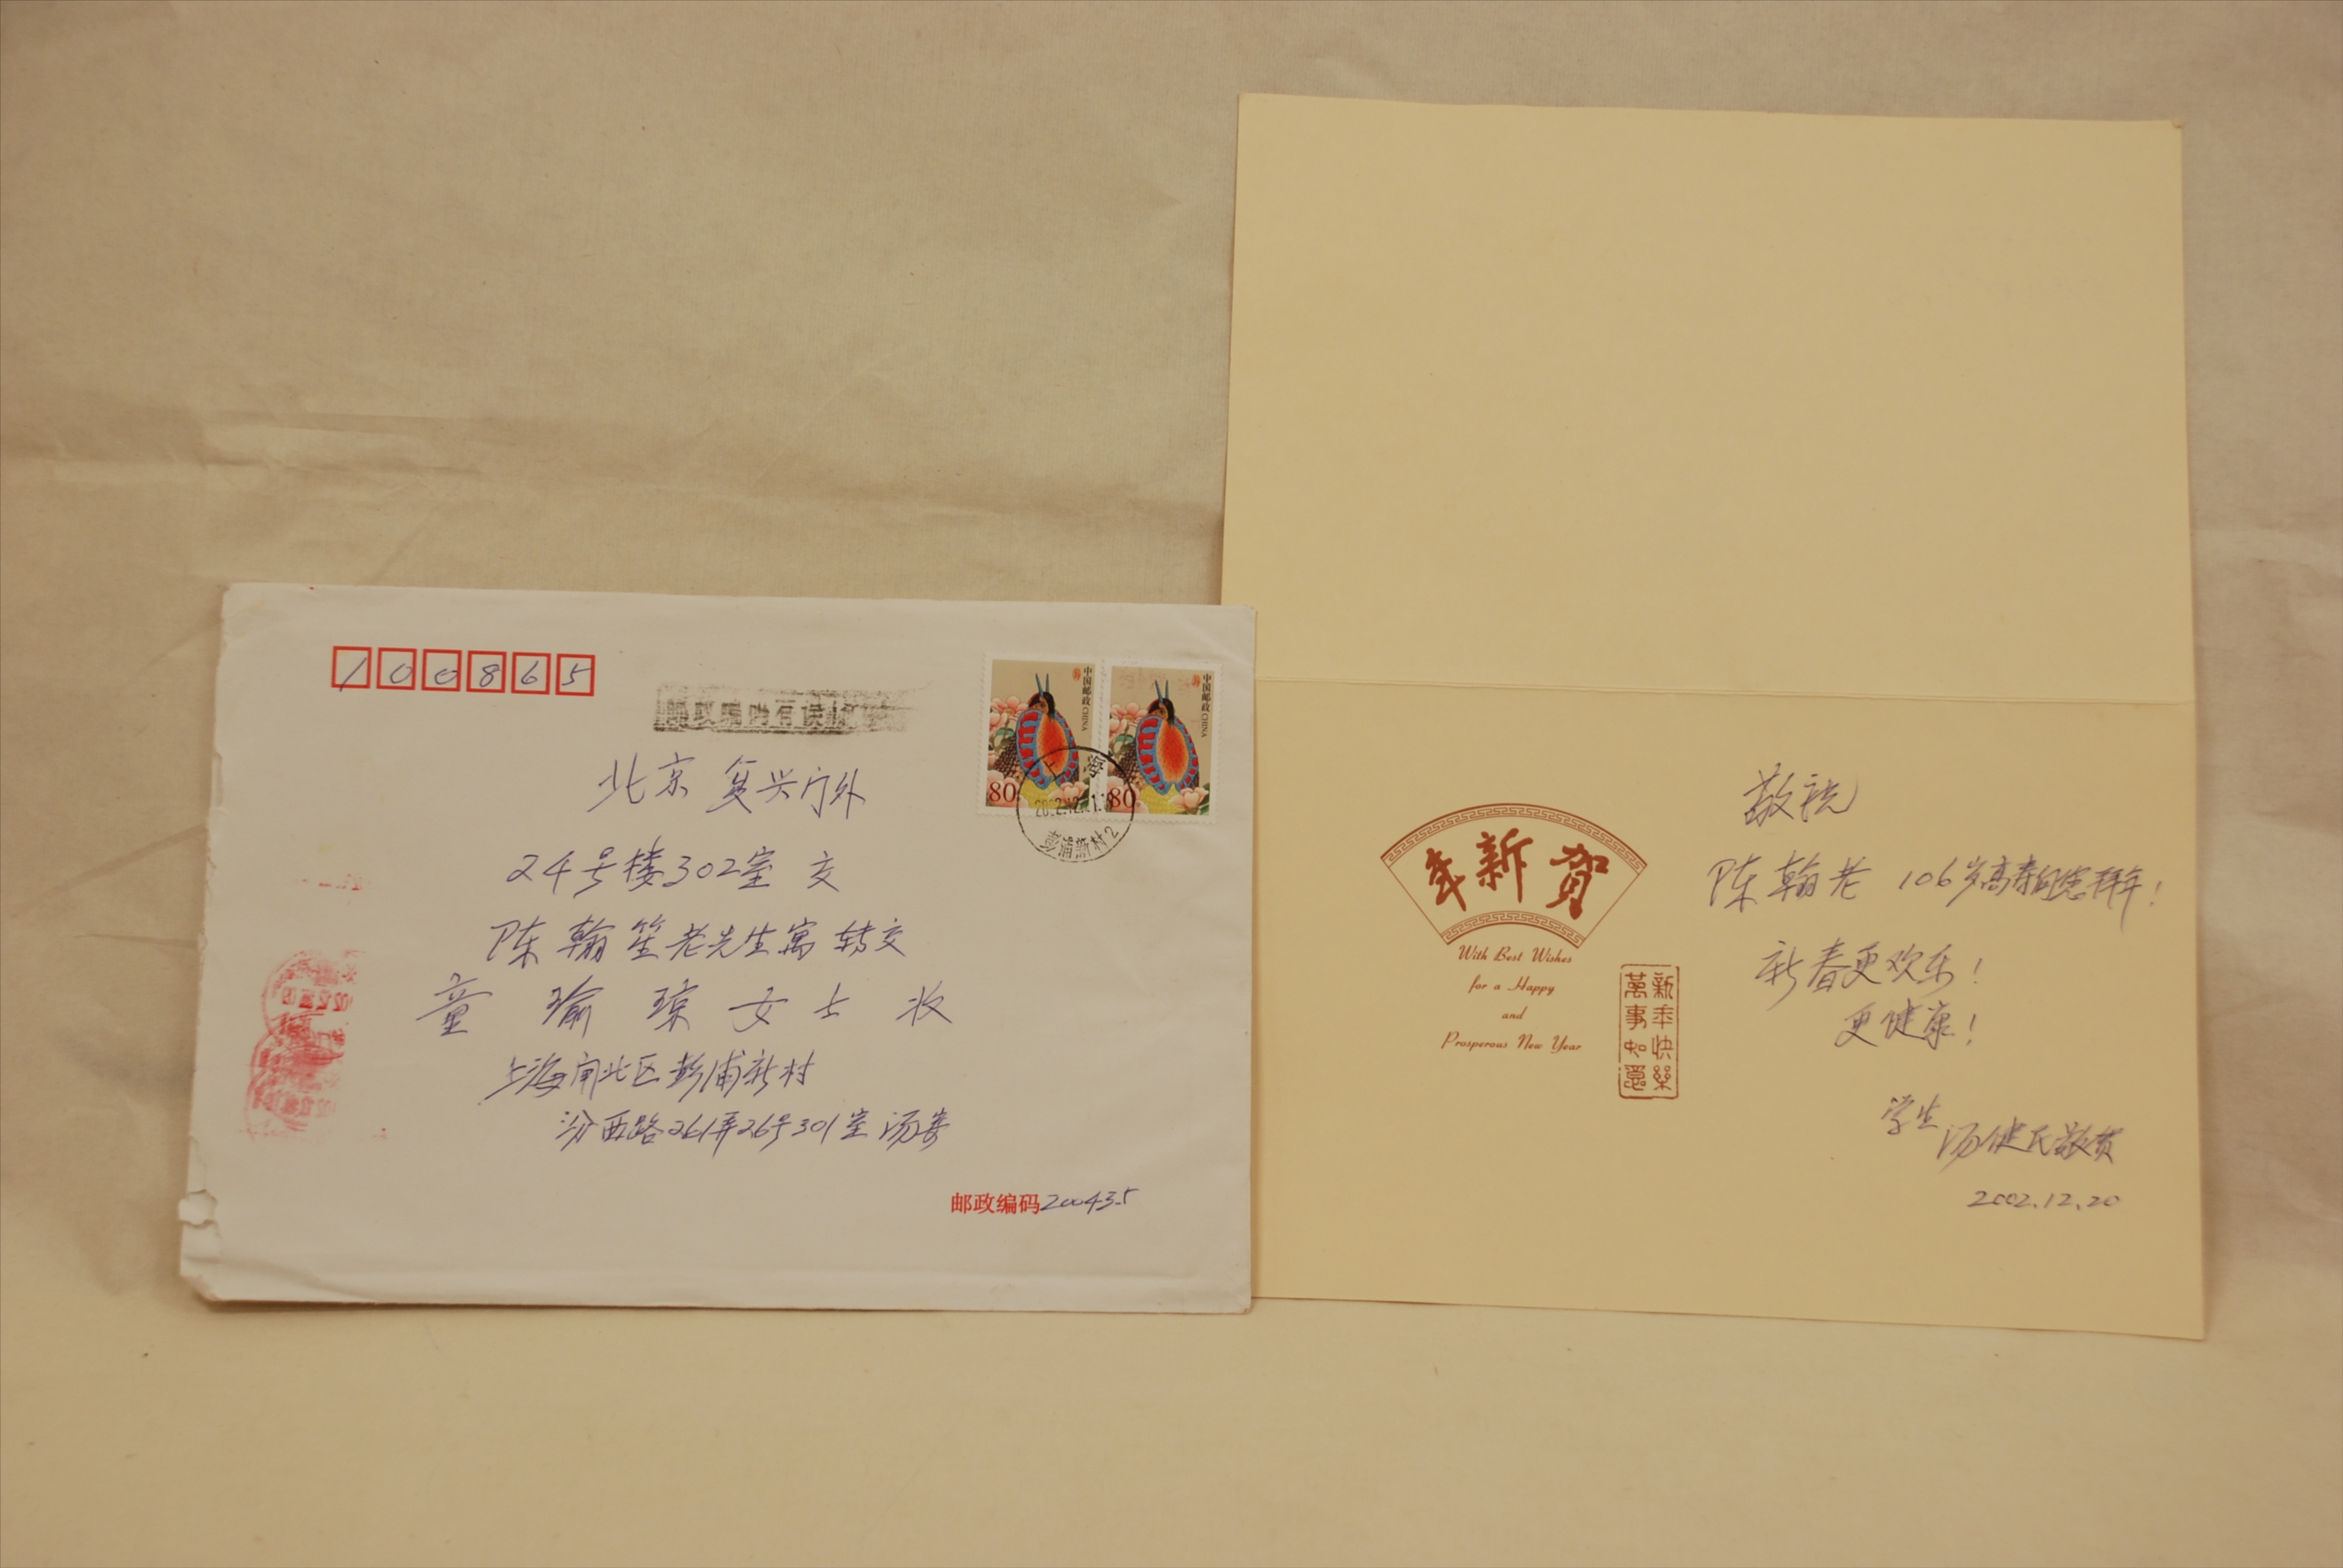 100865
邮政编码有误
中国邮政 CHINA
80
中国邮政 CHINA
80
上海
彭浦新村2
北京 复兴门外
24号楼302室 交
陈翰笙老先生寓 转交
童瑜琼女士 收
上海闸北区彭浦新村
汾西路261弄26号301室 汤寄
邮政编码200435
年新贺
With Best Wishes
for a Happy
and
Prosperous New Year
新年快乐
萬事如意
敬祝
陈翰老 106岁高寿向您拜年!
新春更欢乐!
更健康!
学生
汤健民敬贺
2002.12.20